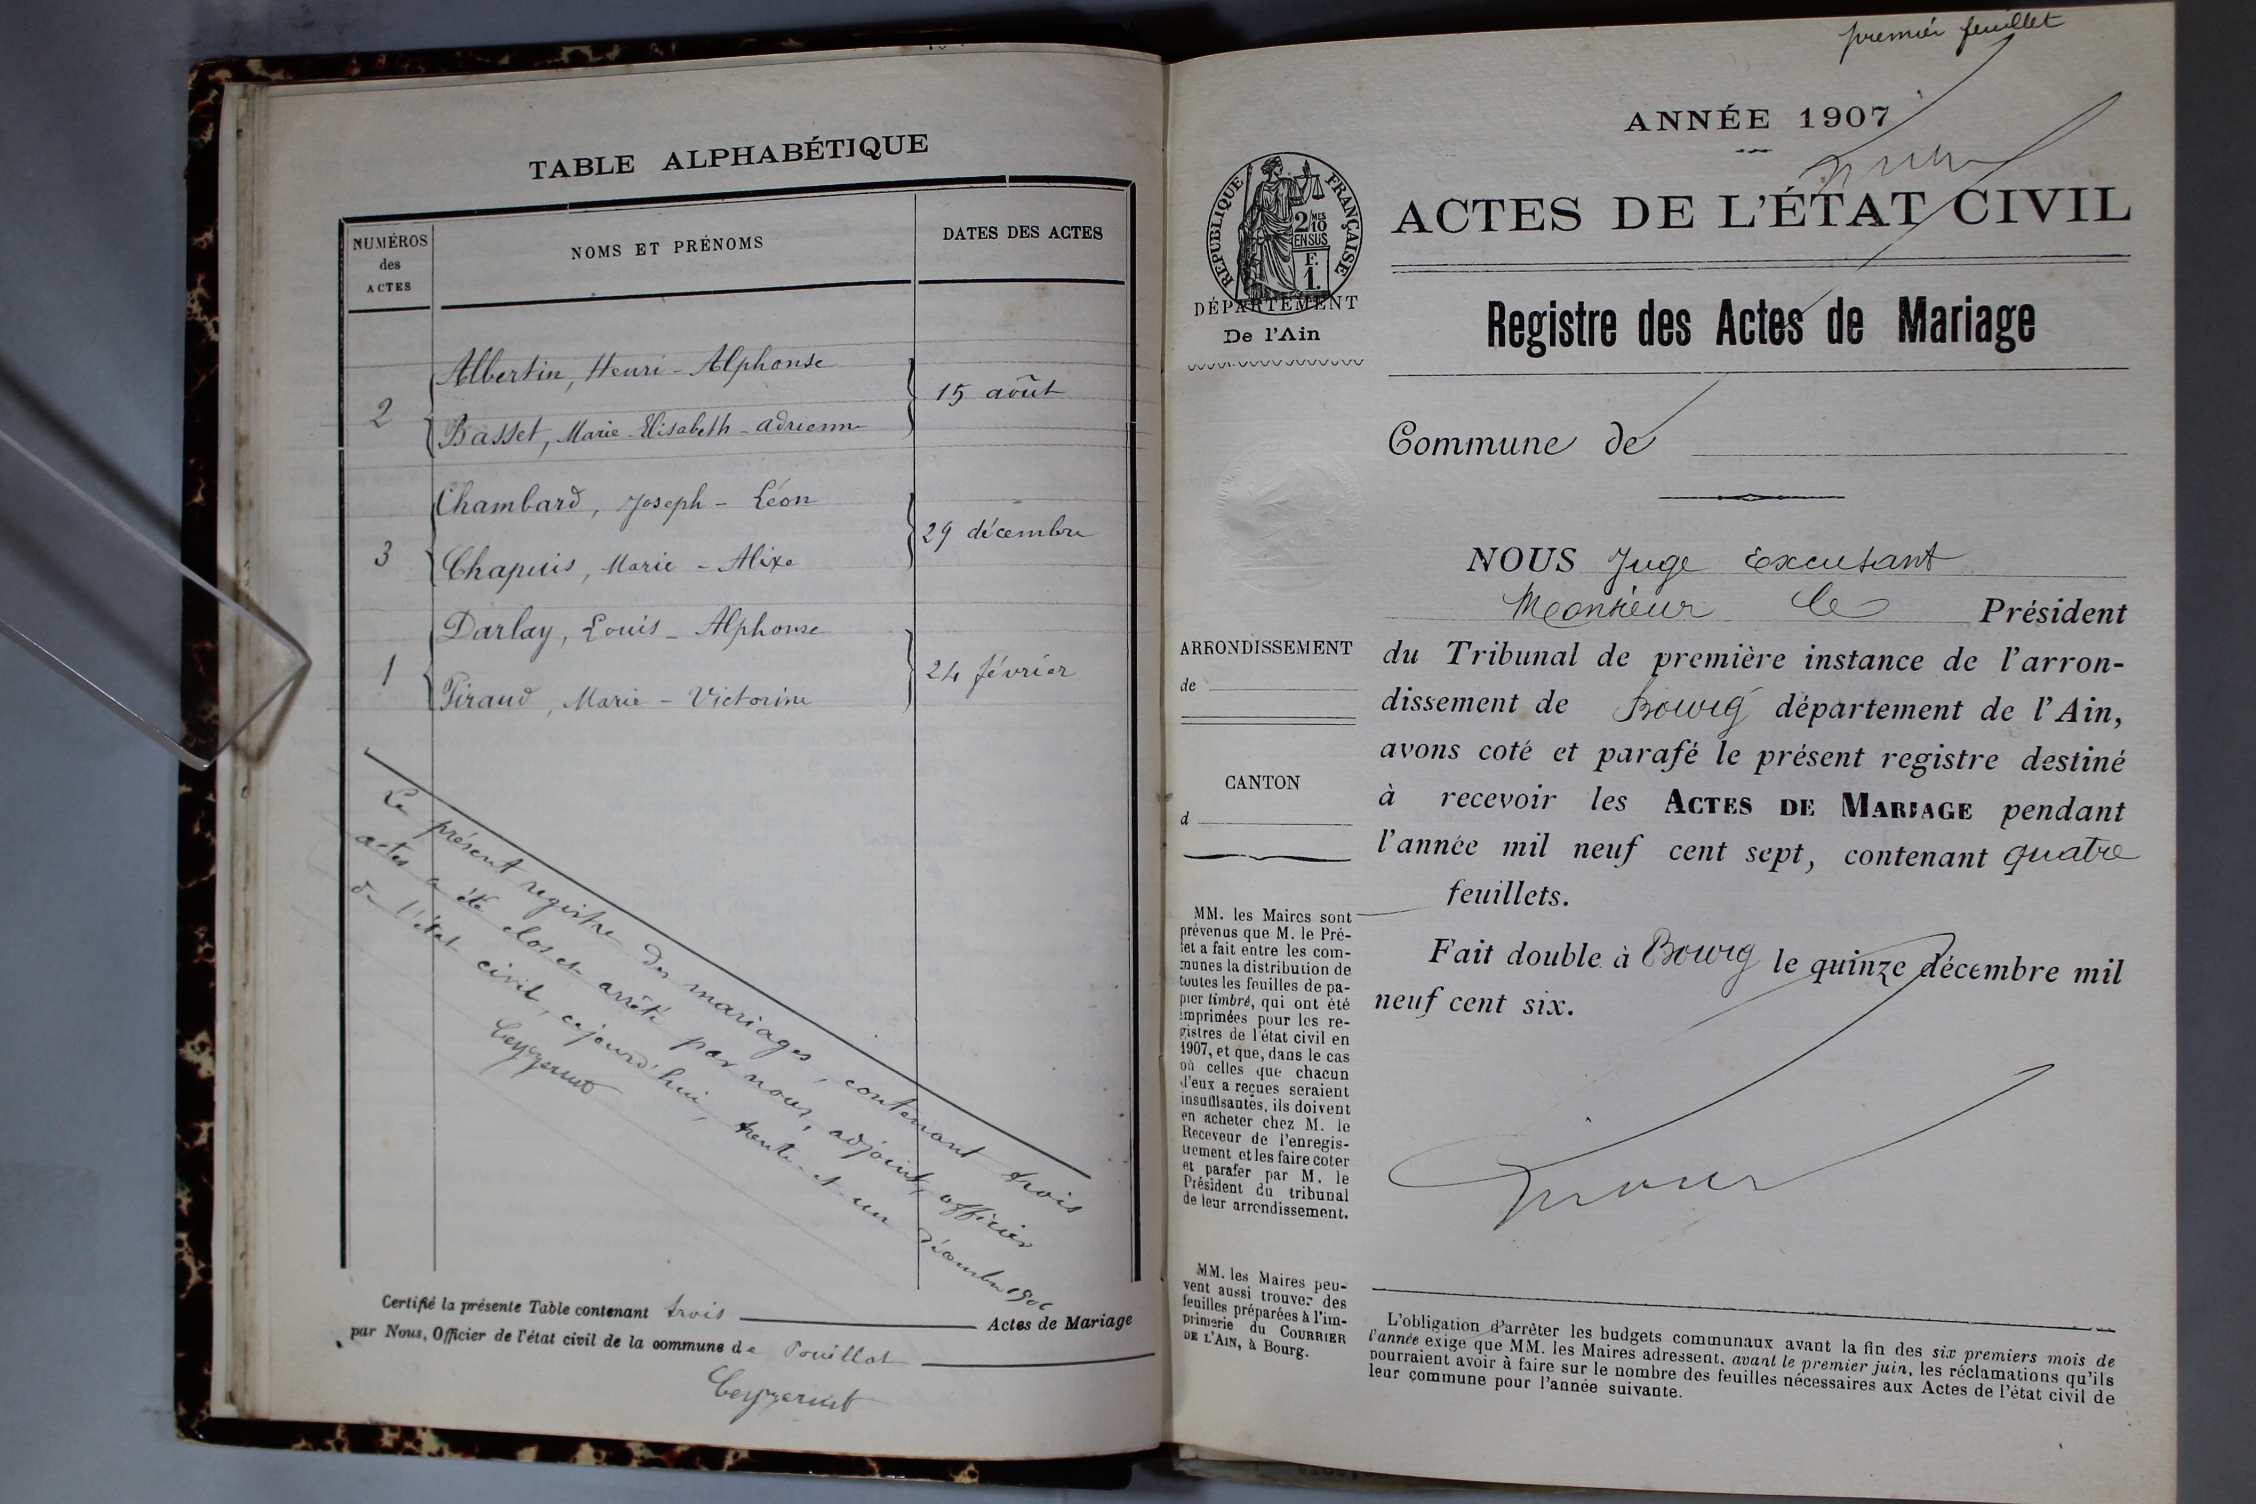 TABLE ALPHABÉTIQUE
NUMÉROS
des
ACTES
NOMS ET PRÉNOMS
DATES DES ACTES
Albertin, Henri - Alphonse
2
15 août
Basset, Marie-Elisabeth-adrienne
Chambard, Joseph - Léon
3
29 décembre
Chapuis, Marie - Alixe
Darlay, Louis - Alphonse
1
24 février
Piraud, Marie - Victorine
Le présent registre des mariages, contenant trois
actes a été clos et arrêté par nous, adjoint, officier
de l'état civil, cejourd'hui, trente-et-un décembre 1906
Certifié la présente Table contenant trois Actes de Mariage
par Nous, Officier de l'état civil de la commune de Pouillat
premier feuillet
ANNÉE 1907
ACTES DE L'ÉTAT CIVIL
RÉPUBLIQUE FRANÇAISE
2/10 MES
EN SUS
F.
1.
DÉPARTEMENT
De l'Ain
Registre des Actes de Mariage
Commune de
NOUS Juge Excusant
Monsieur le Président
du Tribunal de première instance de l'arron-
dissement de Bourg département de l'Ain,
avons coté et parafé le présent registre destiné
à recevoir les ACTES DE MARIAGE pendant
l'année mil neuf cent sept, contenant quatre
feuillets.
Fait double à Bourg le quinze décembre mil
neuf cent six.
ARRONDISSEMENT
de
CANTON
d
MM. les Maires sont
prévenus que M. le Pré-
fet a fait entre les com-
munes la distribution de
toutes les feuilles de pa-
pier timbré, qui ont été
imprimées pour les re-
gistres de l'état civil en
1907, et que, dans le cas
où celles que chacun
d'eux a reçues seraient
insuffisantes, ils doivent
en acheter chez M. le
Receveur de l'enregis-
trement et les faire coter
et parafer par M. le
Président du tribunal
de leur arrondissement.
MM. les Maires peu-
vent aussi trouver des
feuilles préparées à l'im-
primerie du COURRIER
DE L'AIN, à Bourg.
L'obligation d'arrêter les budgets communaux avant la fin des six premiers mois de
l'année exige que MM. les Maires adressent, avant le premier juin, les réclamations qu'ils
pourraient avoir à faire sur le nombre des feuilles nécessaires aux Actes de l'état civil de
leur commune pour l'année suivante.